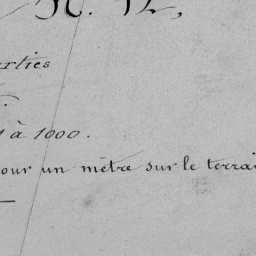 N. 12,
arties
1 à 1000.
pour un mètre sur le terrai